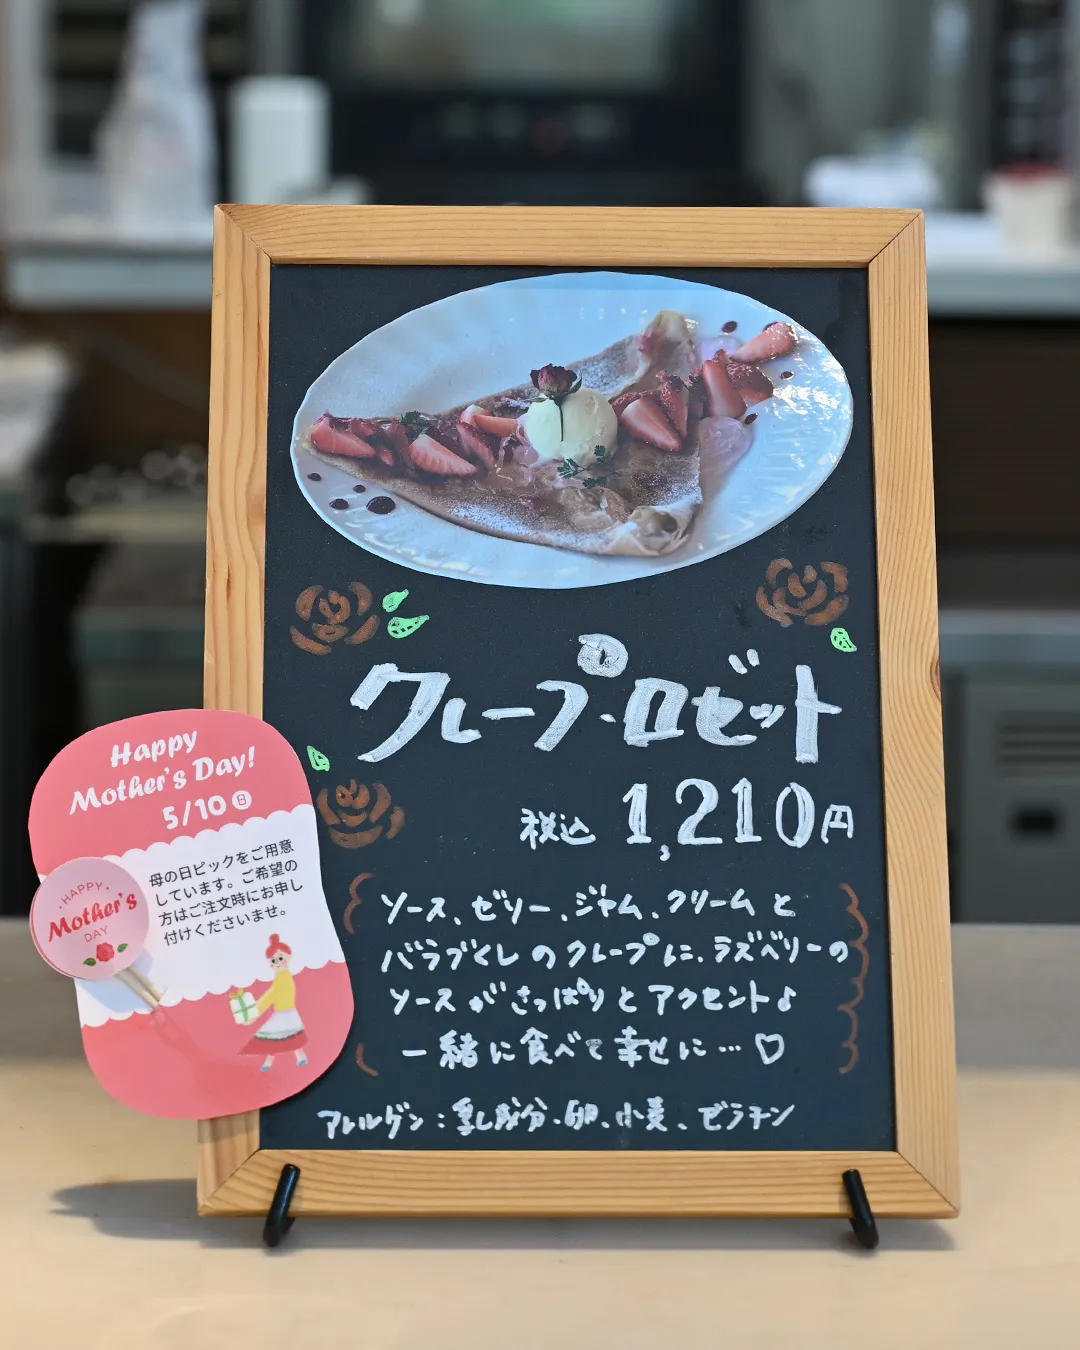 クレープ・ロゼット
税込 1,210円
ソース、ゼリー、ジャム、クリームと
バラづくしのクレープに、ラズベリーの
ソースがさっぱりとアクセント♪
一緒に食べて幸せに…♡
アレルゲン:乳成分、卵、小麦、ゼラチン
Happy
Mother's Day!
5/10 日
母の日ピックをご用意
しています。ご希望の
方はご注文時にお申し
付けくださいませ。
HAPPY
Mother's
DAY